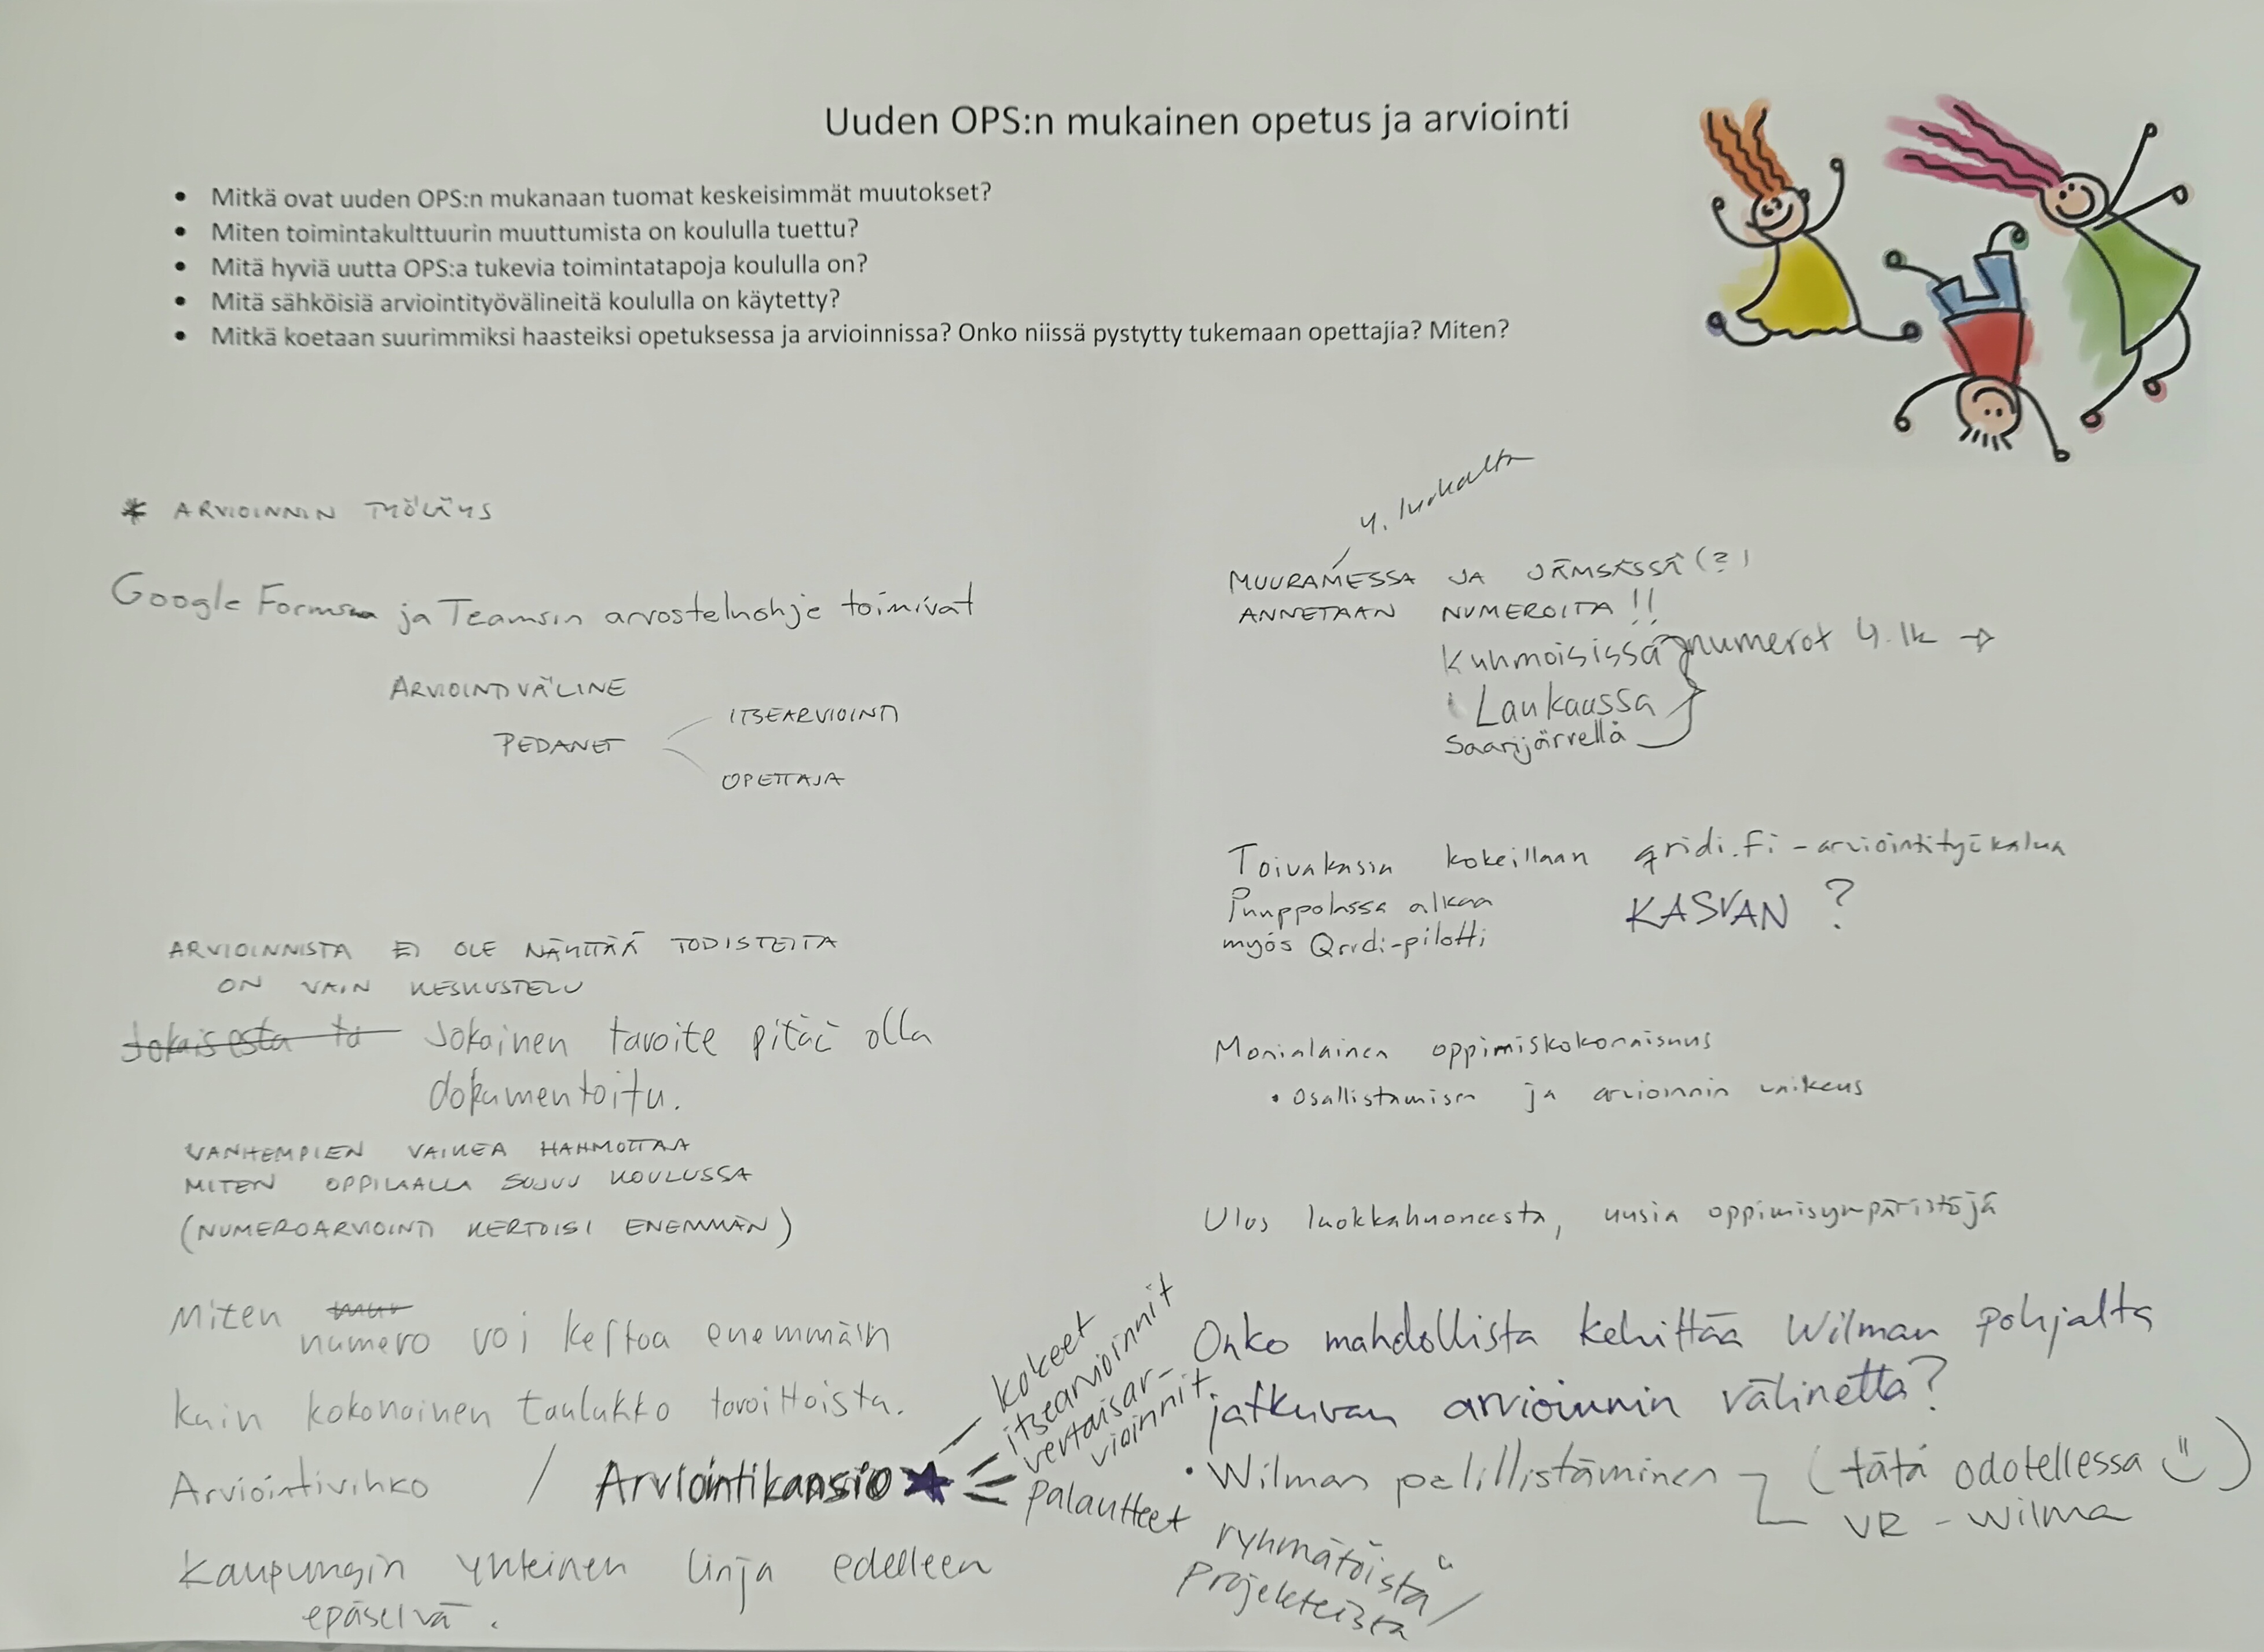 Uuden OPS:n mukainen opetus ja arviointi
• Mitkä ovat uuden OPS:n mukanaan tuomat keskeisimmät muutokset?
• Miten toimintakulttuurin muuttumista on koululla tuettu?
• Mitä hyviä uutta OPS:a tukevia toimintatapoja koululla on?
• Mitä sähköisiä arviointityövälineitä koululla on käytetty?
• Mitkä koetaan suurimmiksi haasteiksi opetuksessa ja arvioinnissa? Onko niissä pystytty tukemaan opettajia? Miten?
* ARVIOINNIN TYÖLÄYS
Google Forms ja Teamsin arvosteluohje toimivat
ARVIOINTIVÄLINE
PEDANET
ITSEARVIOINTI
OPETTAJA
ARVIOINNISTA EI OLE NÄYTTÄÄ TODISTEITA
ON VAIN KESKUSTELU
Jokaisesta ta Jokainen tavoite pitää olla
dokumentoitu.
VANHEMPIEN VAIKEA HAHMOTTAA
MITEN OPPILAALLA SUJUU KOULUSSA
(NUMEROARVIOINTI KERTOISI ENEMMÄN)
Miten
numero voi kertoa enemmän
kuin kokonainen taulukko tavoittoista.
Arviointivihko / Arviointikansio ★
kokeet
itsearvioinnit
vertaisar-
vioinnit
palautteet ryhmätöistä /
projekteista
Kaupungin yhteinen linja edelleen
epäselvä.
4. luokalta
MUURAMESSA JA JÄMSÄSSÄ (?)
ANNETAAN NUMEROITA !!
Kuhmoisissa numerot 4. lk →
Laukaassa
Saarijärvellä
Toivakassa kokeillaan qridi.fi - arviointityökalua
Puuppolassa alkaa
myös Qridi-pilotti
KASVAN ?
Monialainen oppimiskokonaisuus
• Osallistamisen ja arvioinnin vaikeus
Ulos luokkahuoneesta, uusia oppimisympäristöjä
Onko mahdollista kehittää Wilman pohjalta
jatkuvan arvioinnin välinettä?
• Wilman pelillistäminen (tätä odotellessa ü)
VR - Wilma